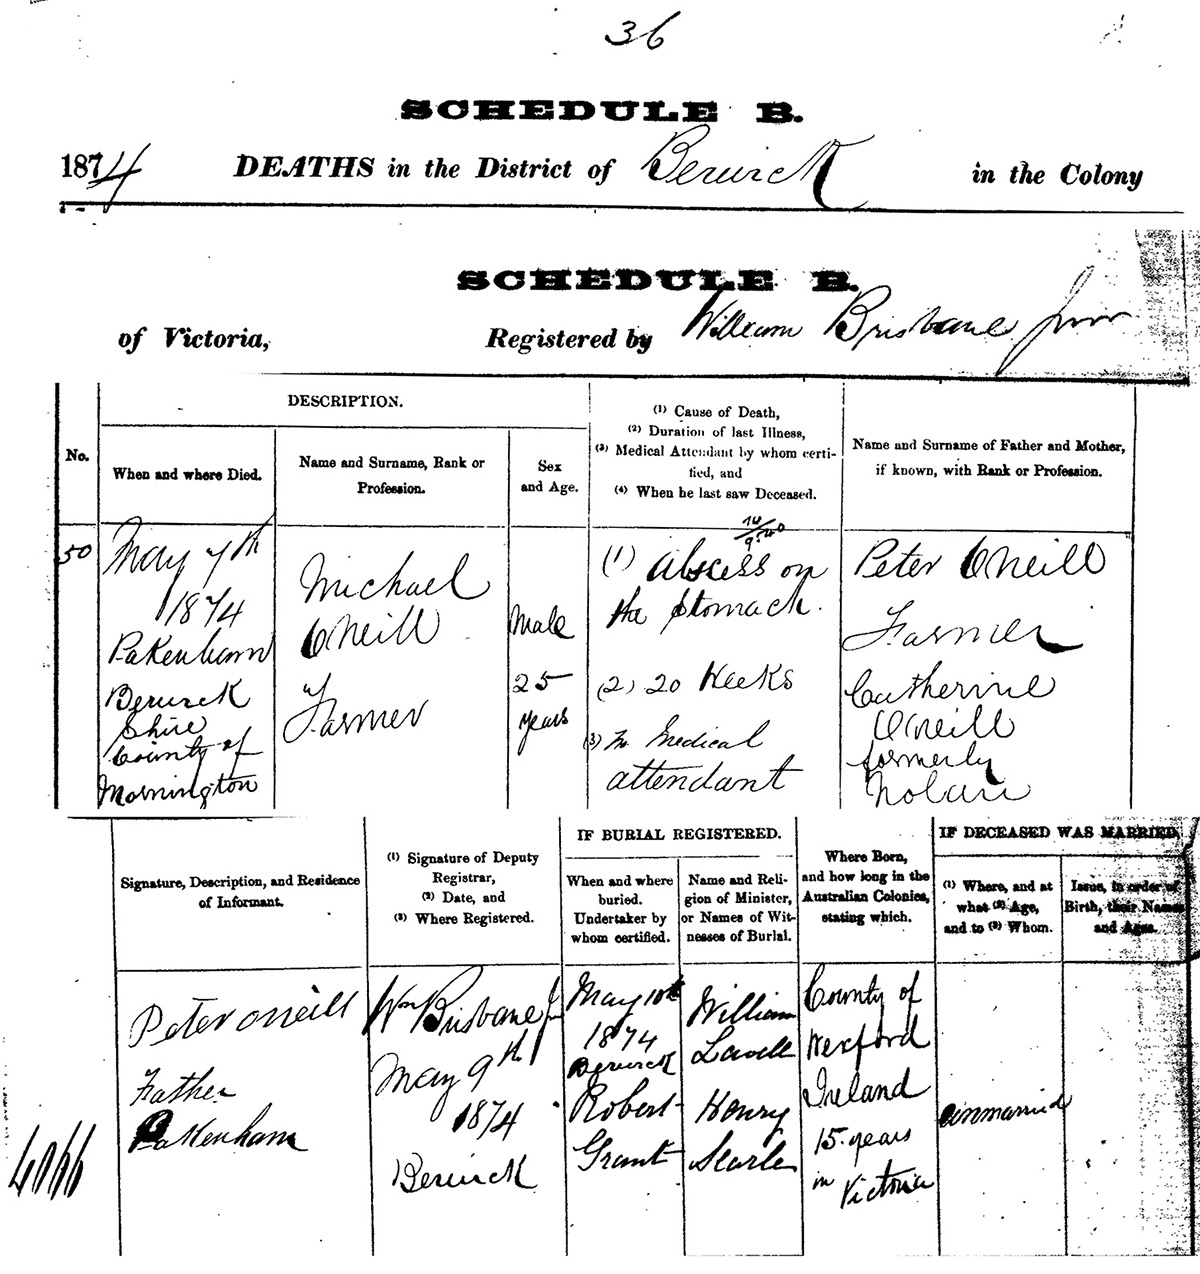 36
SCHEDULE B.
1874 DEATHS in the District of Berwick in the Colony
SCHEDULE B.
of Victoria, Registered by William Brisbane Junr
DESCRIPTION.
No.
When and where Died.
Name and Surname, Rank or
Profession.
Sex
and Age.
(1) Cause of Death,
(2) Duration of last Illness,
(3) Medical Attendant by whom certi-
fied, and
(4) When he last saw Deceased.
Name and Surname of Father and Mother,
if known, with Rank or Profession.
50
May 7th
1874
Pakenham
Berwick
Shire
County of
Mornington
Michael
O'Neill
Farmer
Male
25
years
(1) Abscess on
the Stomach.
(2) 20 Weeks
(3) No Medical
attendant
Peter O'Neill
Farmer
Catherine
O'Neill
formerly
Nolan
Signature, Description, and Residence
of Informant.
(1) Signature of Deputy
Registrar,
(2) Date, and
(3) Where Registered.
IF BURIAL REGISTERED.
When and where
buried.
Undertaker by
whom certified.
Name and Reli-
gion of Minister,
or Names of Wit-
nesses of Burial.
Where Born,
and how long in the
Australian Colonies,
stating which.
IF DECEASED WAS MARRIED,
(1) Where, and at
what (2) Age,
and to (3) Whom.
Issue, in order of
Birth, their Names
and Ages.
4066
Peter O'Neill
Father
Pakenham
Wm Brisbane Jr
May 9th
1874
Berwick
May 10th
1874
Berwick
Robert
Grant
William
Lavell
Henry
Searle
County of
Wexford
Ireland
15 years
in Victoria
unmarried